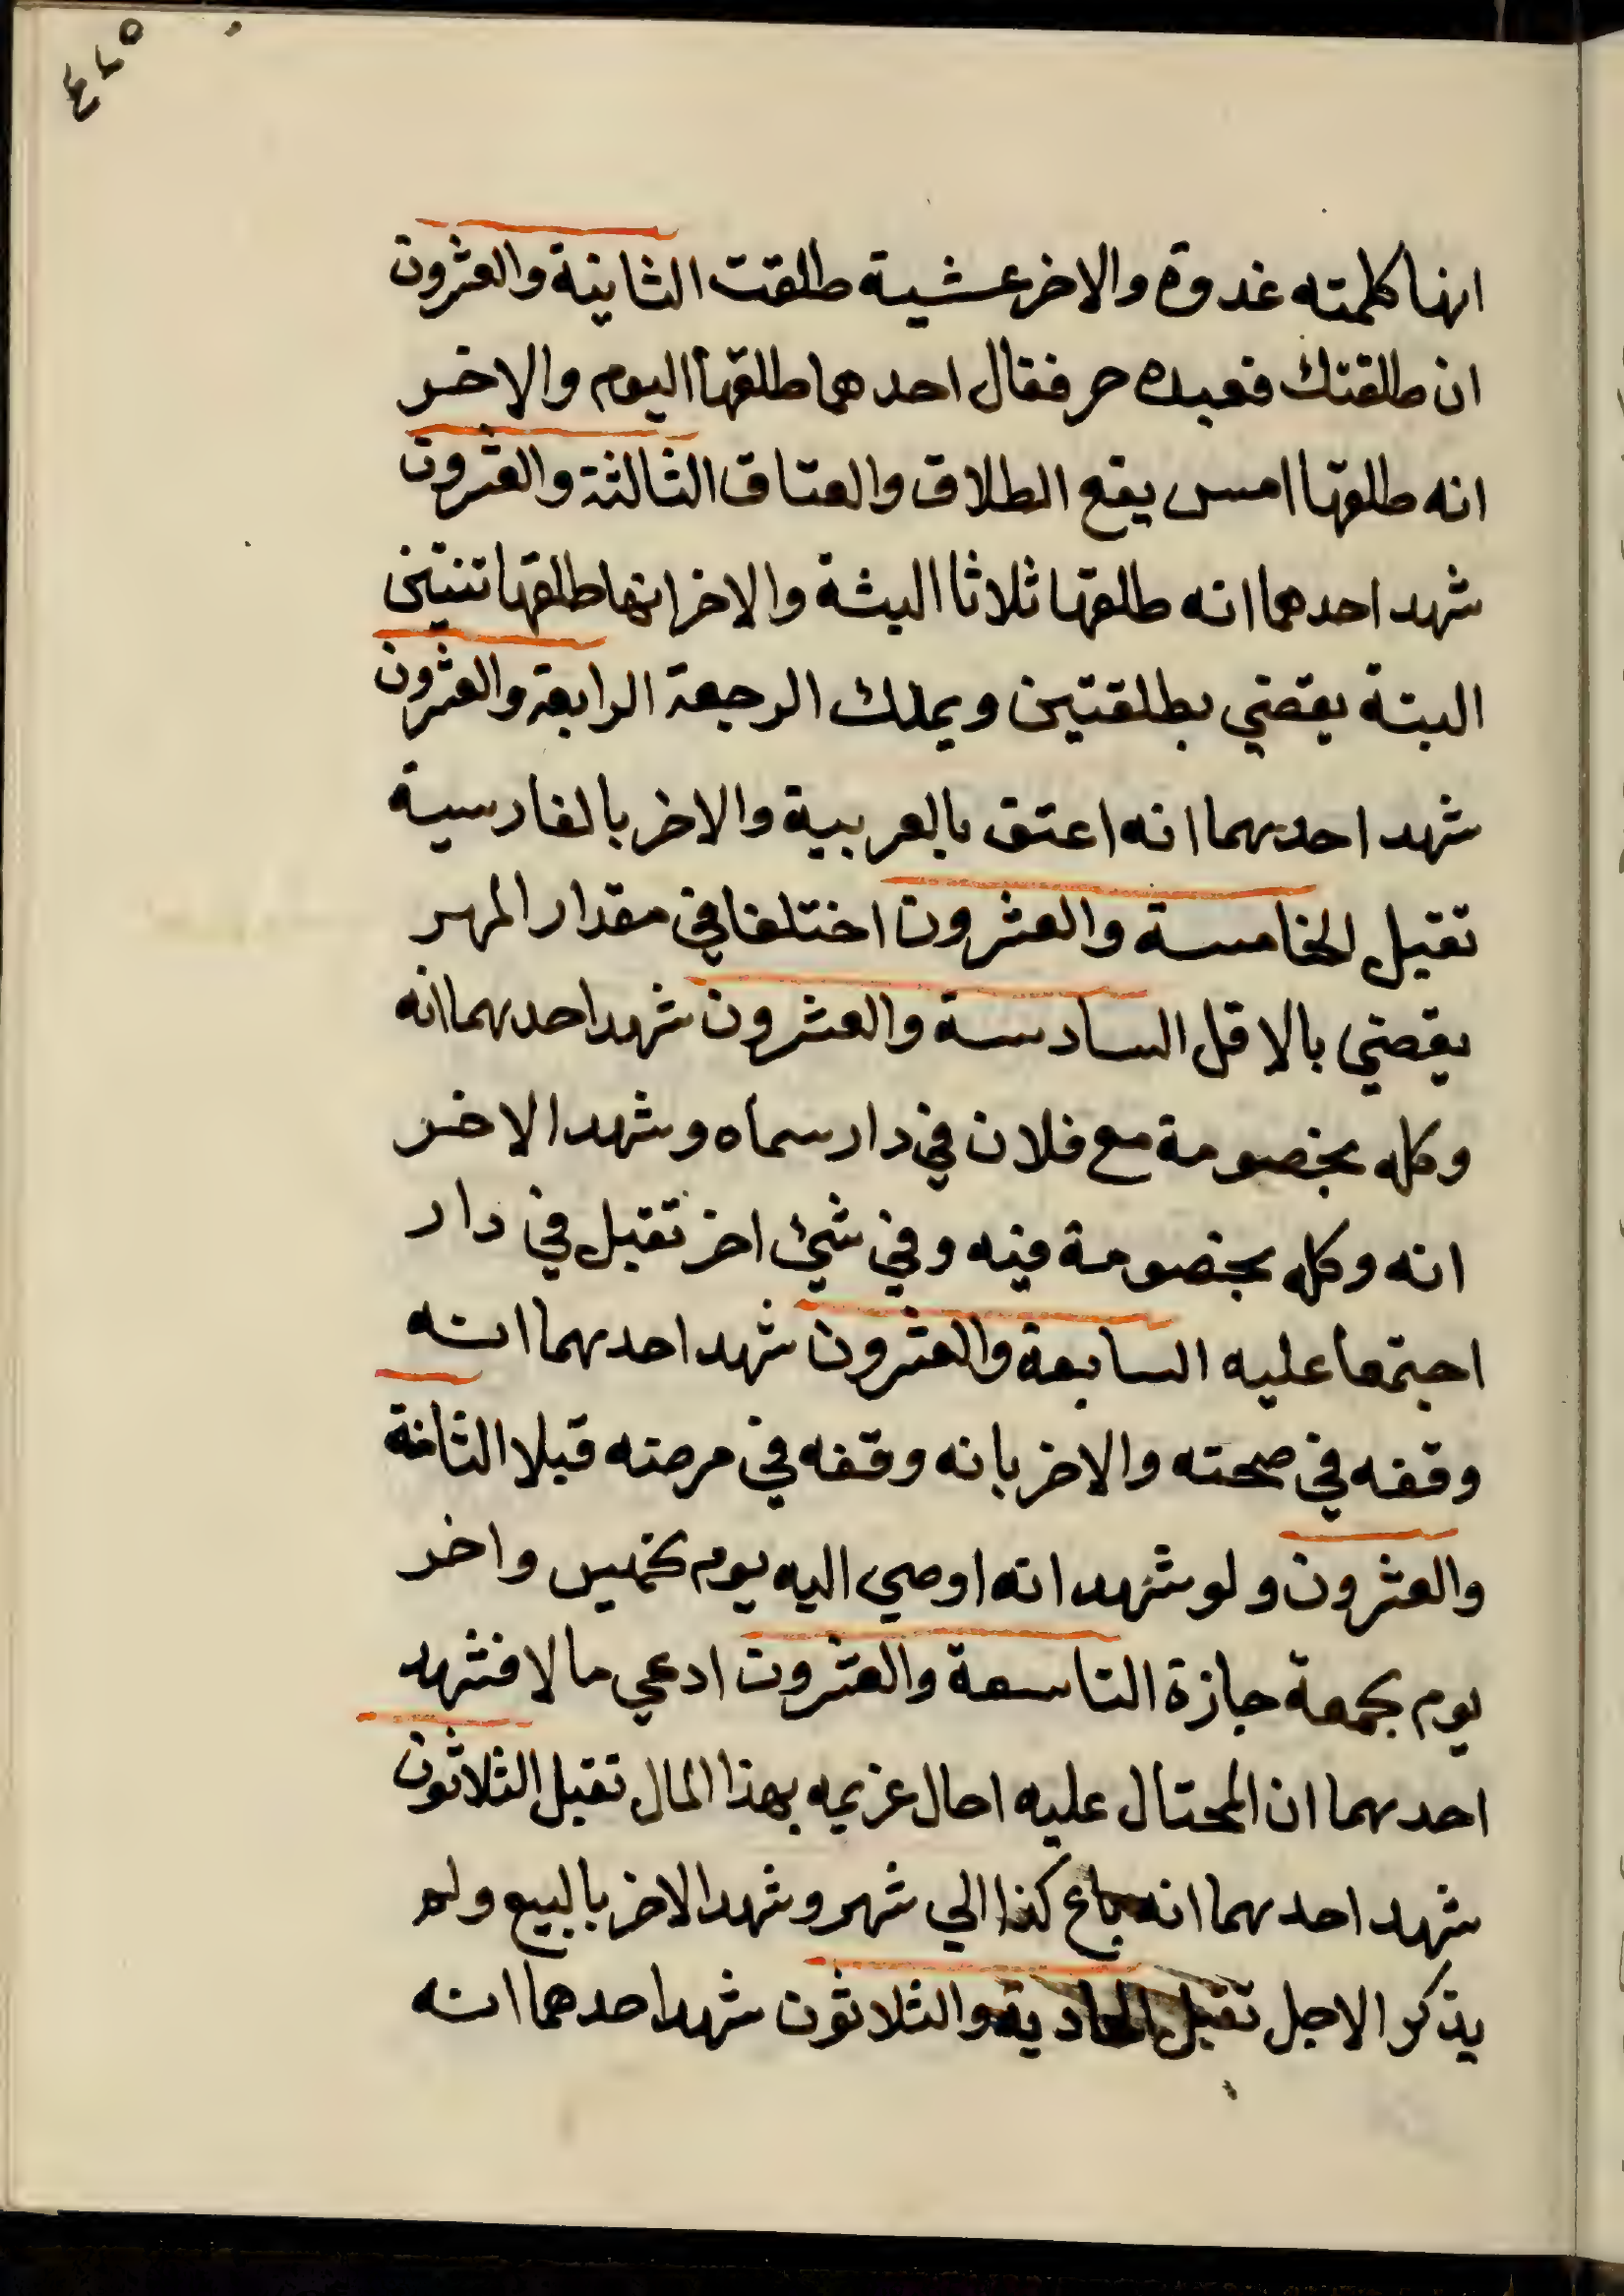 انها كلمته غدوة والاخر عشية طلقت الثانية والعشرون
ان طلقتك فعبده حر فقال احدهما طلقها اليوم والاخر
انه طلقها امس يقع الطلاق والعتاق الثالثة والعشرون
شهد احدهما انه طلقها ثلاثا البثة والاخر انها طلقها تنتين
البتة يقضي بطلقتين ويملك الرجعة الرابعة والعشرون
شهد احدهما انه اعتق بالعربية والاخر بالفارسية
تقبل الخامسة والعشرون اختلفا في مقدار المهر
يقضي بالاقل السادسة والعشرون شهد احدهما انه
وكله بخصومة مع فلان في دار سماه وشهد الاخر
انه وكله بخصومة فيه وفي شئ اخر تقبل في دار
اجتمعا عليه السابعة والعشرون شهد احدهما انه
وقفه في صحته والاخر بانه وقفه في مرضه قبلا الثامنة
والعشرون ولو شهد انه اوصي اليه يوم كخميس واخر
يوم كجمعة جازة التاسعة والعشرون ادعي مالا فشهد
احدهما ان المحتال عليه احال غريمه بهذا المال تقبل الثلاثون
شهد احدهما انه باع كذا الي شهر وشهد الاخر بالبيع ولم
يذكر الاجل تقبل الحادية والثلاثون شهد احدهما انه